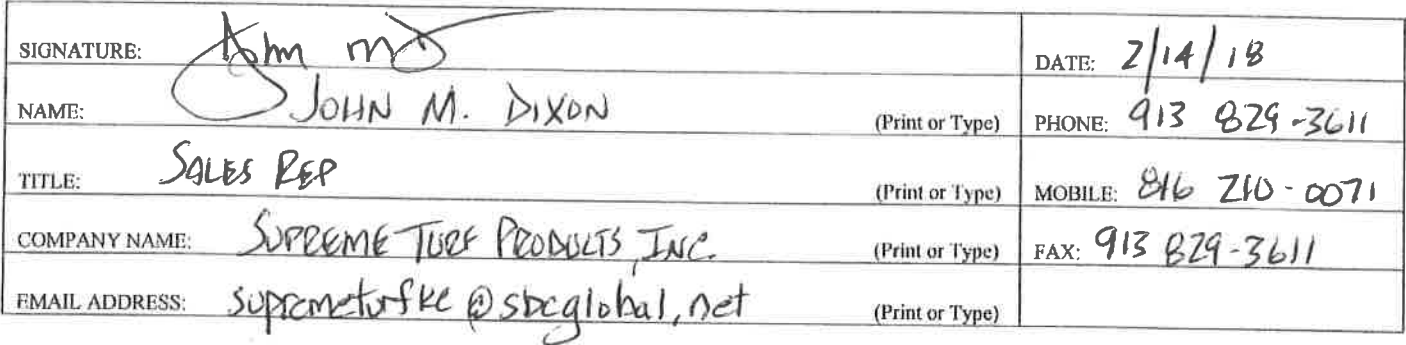 SIGNATURE: John M D DATE: 2/14/18
NAME: JOHN M. DIXON (Print or Type) PHONE: 913 829-3611
TITLE: SALES REP (Print or Type) MOBILE: 816 210-0071
COMPANY NAME: SUPREME TURF PRODUCTS, INC. (Print or Type) FAX: 913 829-3611
EMAIL ADDRESS: supremeturfkc@sbcglobal.net (Print or Type)